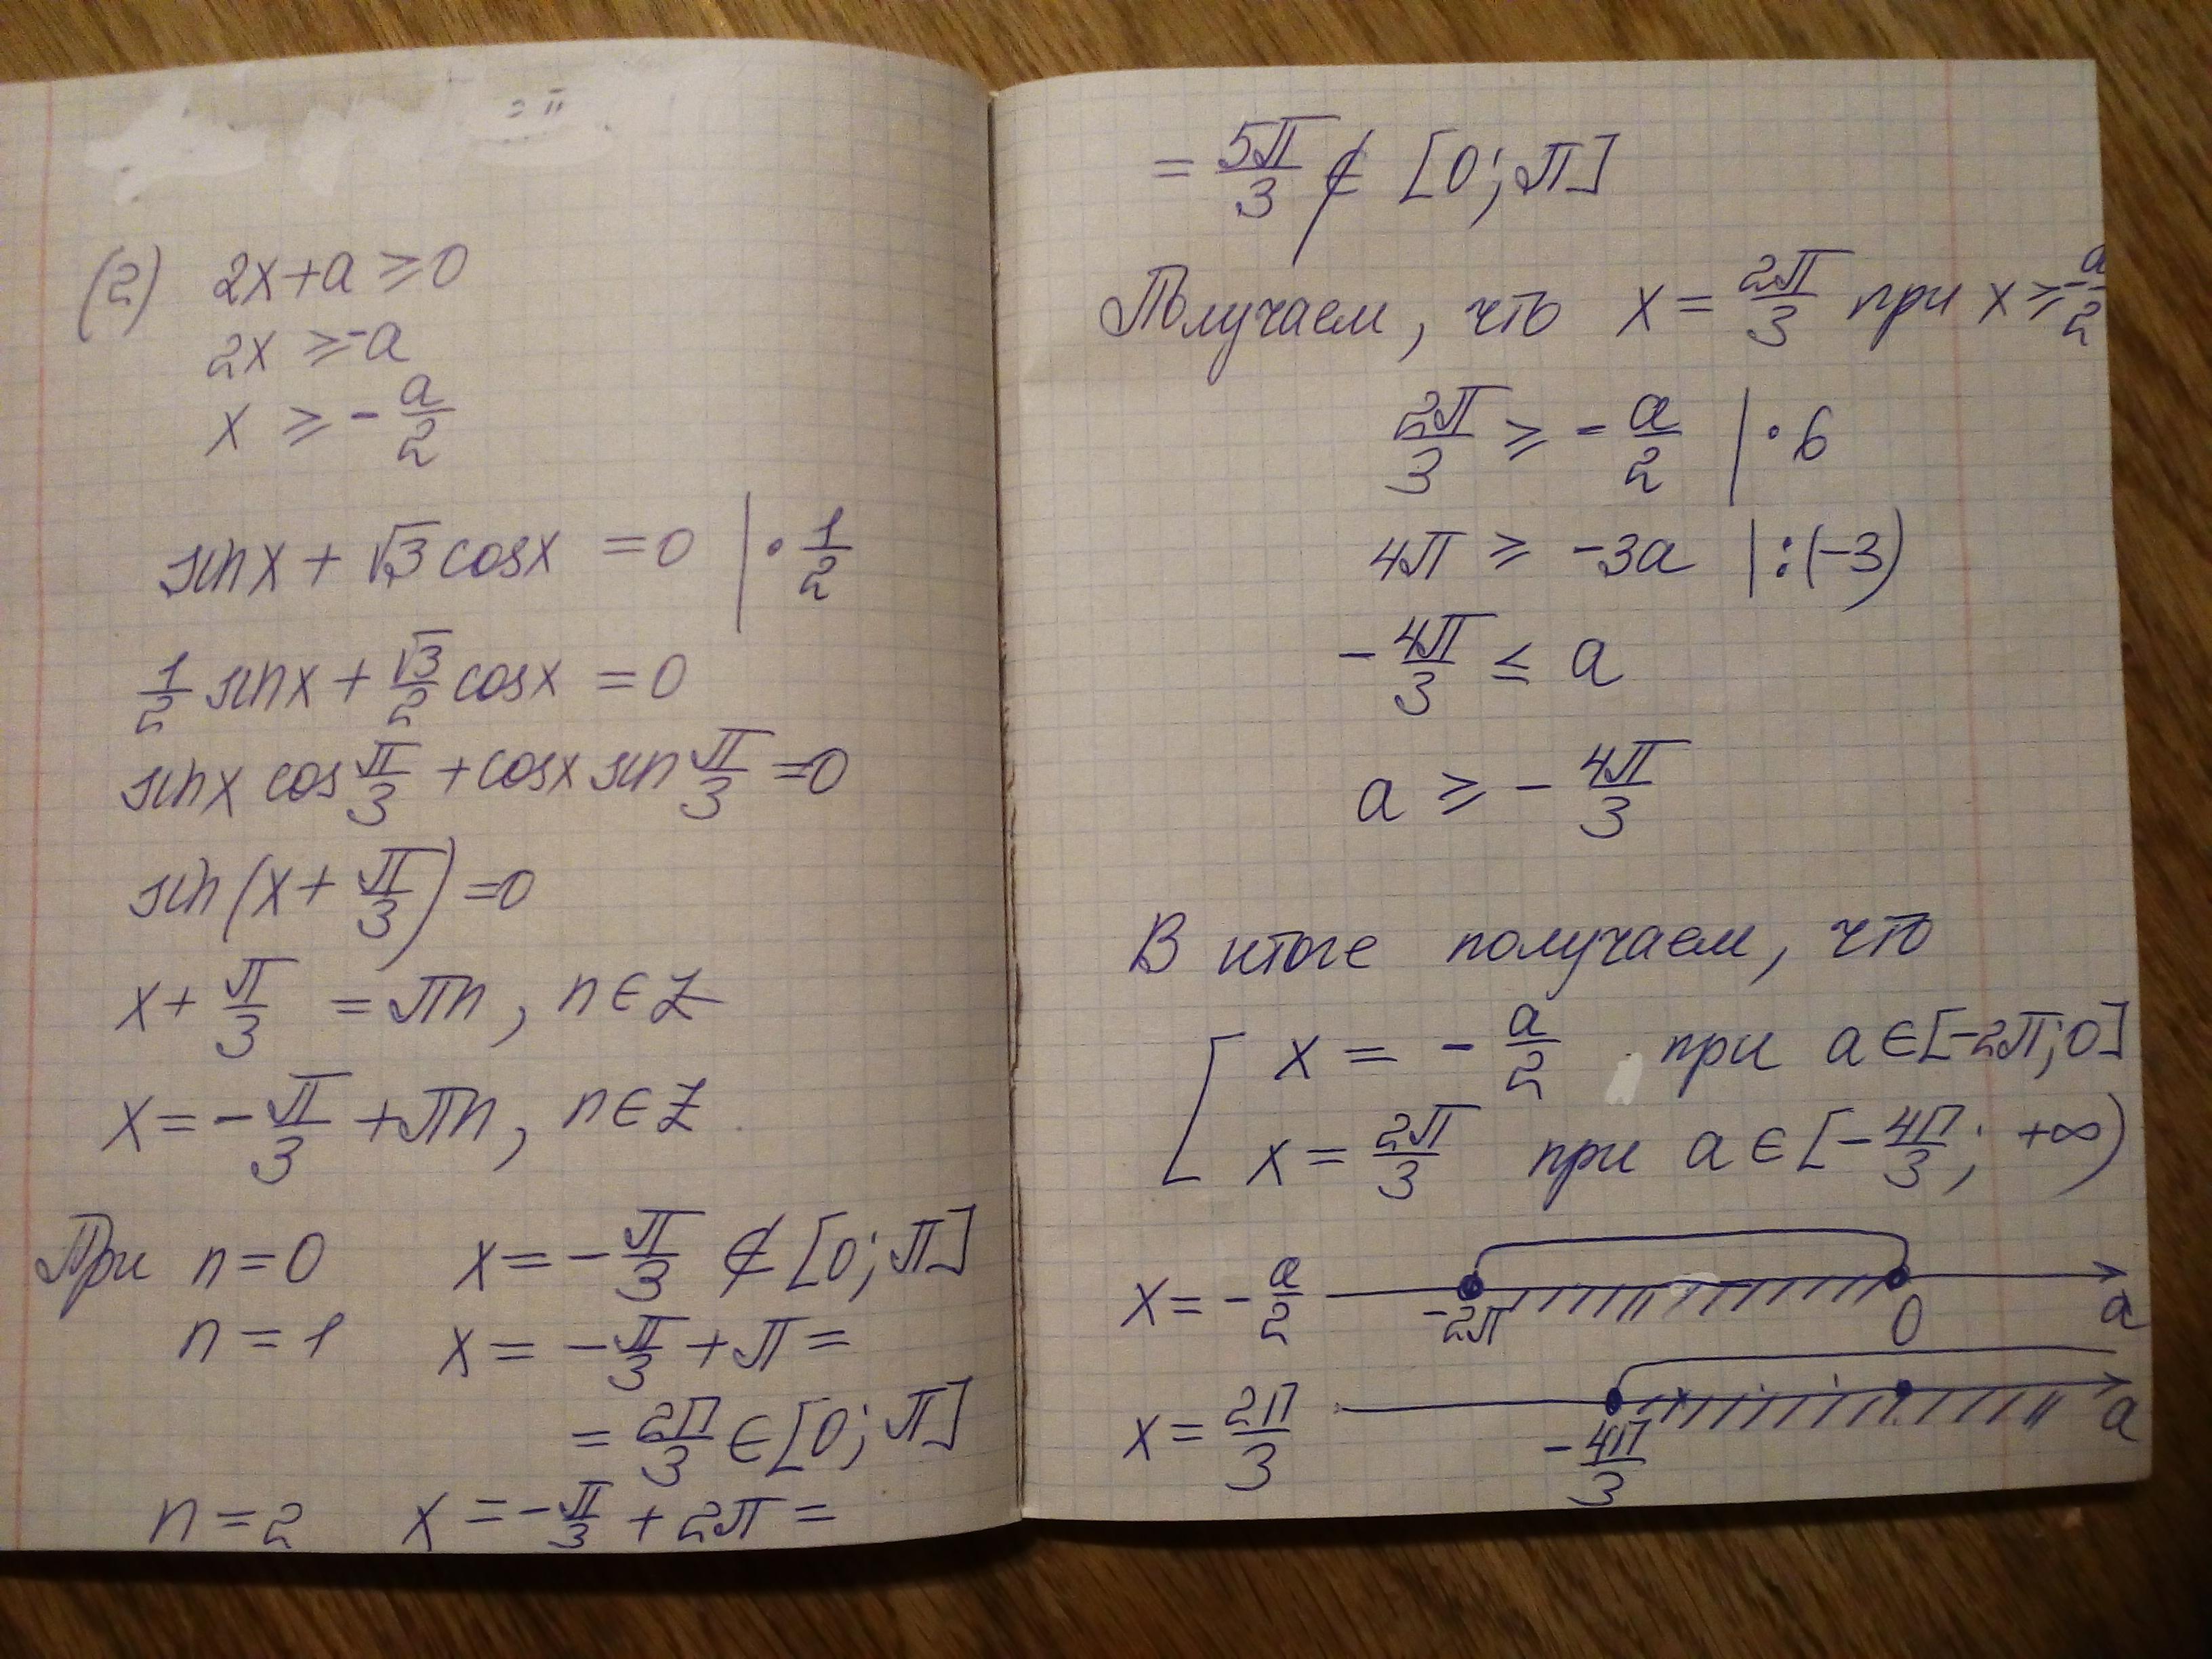 = π
(2) 2x+a ≥ 0
2x ≥ -a
x ≥ - a/2
sin x + √3 cos x = 0 | · 1/2
1/2 sin x + √3/2 cos x = 0
sin x cos π/3 + cos x sin π/3 = 0
sin(x + π/3) = 0
x + π/3 = πn, n ∈ Z
x = - π/3 + πn, n ∈ Z
При n = 0 x = - π/3 ∉ [0; π]
n = 1 x = - π/3 + π =
= 2π/3 ∈ [0; π]
n = 2 x = - π/3 + 2π =
= 5π/3 ∉ [0; π]
Получаем, что x = 2π/3 при x ≥ - a/2
2π/3 ≥ - a/2 | · 6
4π ≥ -3a | : (-3)
- 4π/3 ≤ a
a ≥ - 4π/3
В итоге получаем, что
[ x = - a/2 при a ∈ [-2π; 0]
x = 2π/3 при a ∈ [- 4π/3; +∞)
x = - a/2 -2π 0 a
x = 2π/3 - 4π/3 a